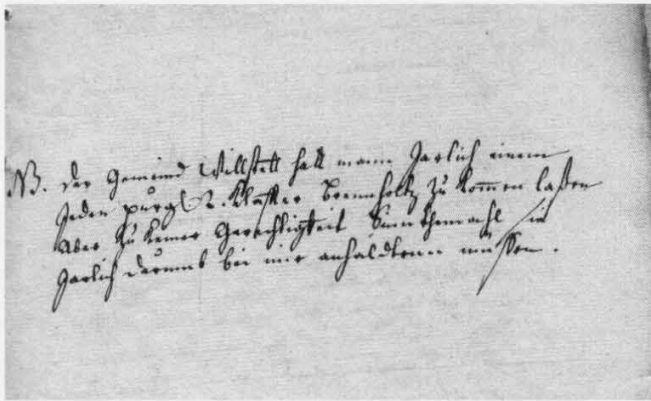 NB. der Gemeind Willstett hatt mann Jarlich einem
Jeden purger 2 Klaffter Brennholtz zu kommen laßen
aber zu keiner Gerechtigkeit Sinnthemahl sie
Jarlich darumb bei mir anhaldtenn müssen.